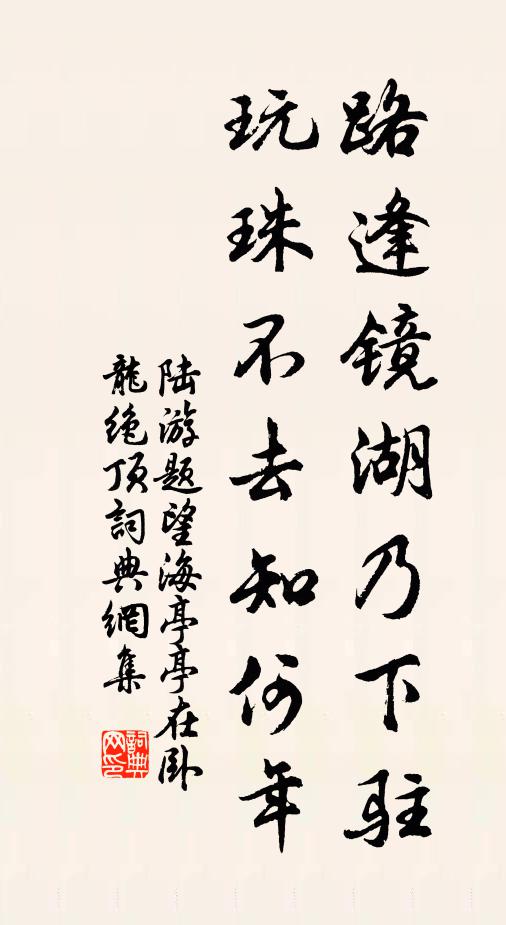 路逢镜湖乃下駐
玩珠不去知何年
陆游题望海亭亭在卧
龍绝頂詞典網集
詞典
网印